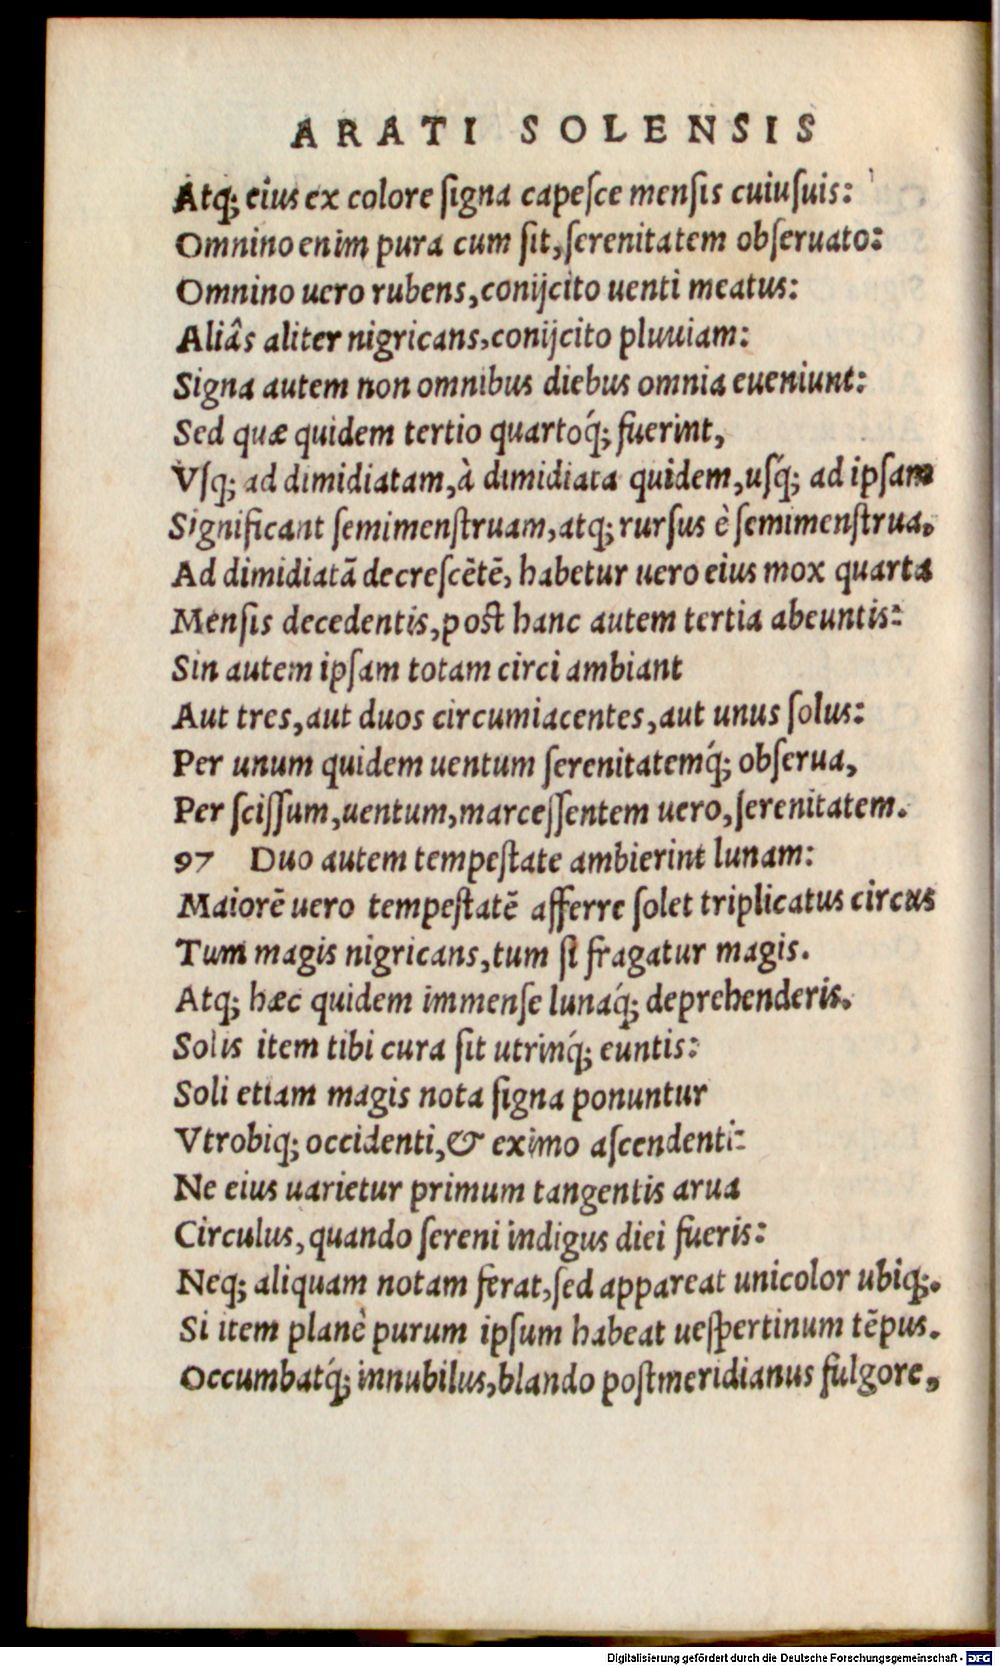 ARATI SOLENSIS
Atq; eius ex colore ſigna capeſce menſis cuiuſuis:
Omnino enim pura cum ſit, ſerenitatem obſeruato:
Omnino uero rubens, conijcito uenti meatus:
Aliâs aliter nigricans, conijcito pluuiam:
Signa autem non omnibus diebus omnia eueniunt:
Sed quæ quidem tertio quartoq́; fuerint,
Vſq; ad dimidiatam, à dimidiata quidem, uſq́; ad ipſam
Significant ſemimenſtruam, atq; rurſus è ſemimenſtrua.
Ad dimidiatā decreſcētē, habetur uero eius mox quarta
Menſis decedentis, post hanc autem tertia abeuntis:
Sin autem ipſam totam circi ambiant
Aut tres, aut duos circumiacentes, aut unus ſolus:
Per unum quidem uentum ſerenitatemq́; obſerua,
Per ſciſſum, uentum, marceſſentem uero, ſerenitatem.
97 Duo autem tempeſtate ambierint lunam:
Maiorē uero tempeſtatē afferre ſolet triplicatus circus
Tum magis nigricans, tum ſi fragatur magis.
Atq; hæc quidem immenſe lunaq́; deprehenderis.
Solis item tibi cura ſit utrinq́; euntis:
Soli etiam magis nota ſigna ponuntur
Vtrobiq; occidenti, & eximo aſcendenti:
Ne eius uarietur primum tangentis arua
Circulus, quando ſereni indigus diei fueris:
Neq; aliquam notam ferat, ſed appareat unicolor ubiq;.
Si item planè purum ipſum habeat ueſpertinum tēpus.
Occumbatq́; innubilus, blando poſtmeridianus fulgore,
Digitalisierung gefördert durch die Deutsche Forschungsgemeinschaft - DFG